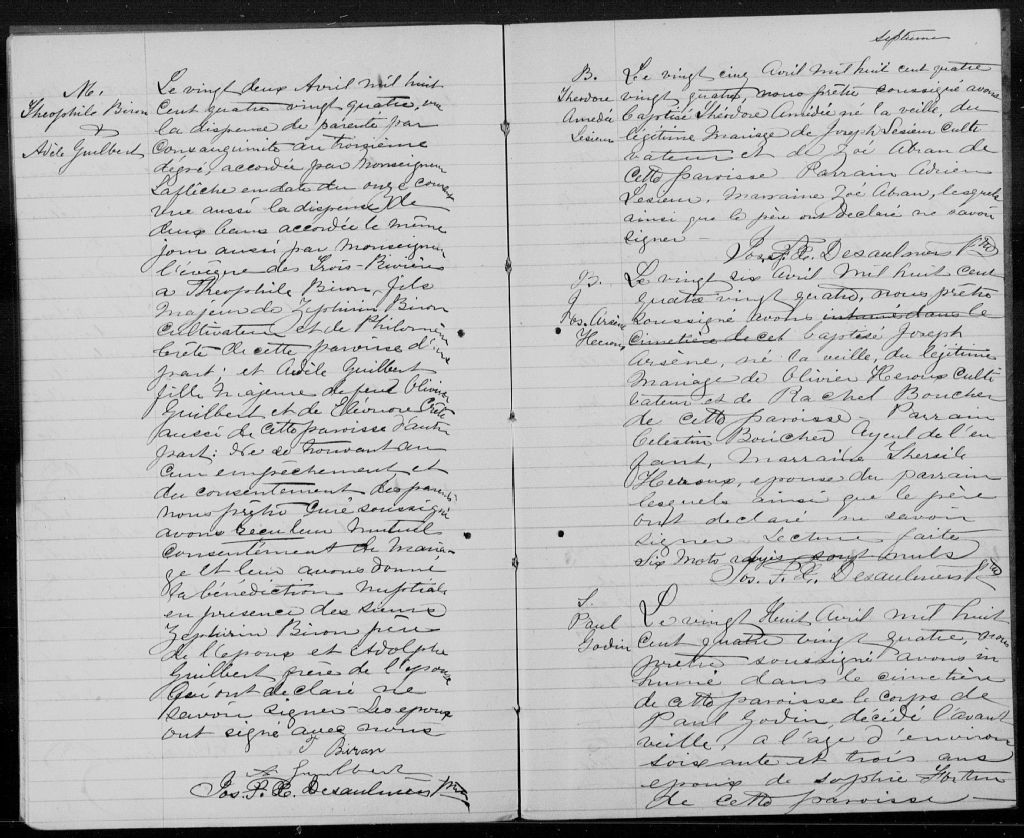 M.
Théophile Biron
&
Adèle Guilbert
Le vingt deux Avril mil huit
Cent quatre vingt quatre, vu
la dispense de parenté par
Consanguinité au troisième
dégré, accordée par Monseigneur
Laflèche en date du onze courant
Vue aussi la dispense de
deux bans accordée le même
jour aussi par Monseigneur
l'évèque des Trois-Rivières
a Théophile Biron, fils
Majeur de Zéphirin Biron
Cultivateur et de Philomène
Crête de cette paroisse d'une
part: et Adèle Guilbert
fille Majeure de feu Olivier
Guilbert et de Eléonore Crête
aussi de cette paroisse d'autre
part: Ne se trouvant au
cun empechement et
du consentement des parents
nous prêtre Curé soussigné
avons reçu leur mutuel
Consentement de Maria-
ge et leur avons donné
la bénédiction Nuptiale
en présence des sieurs
Zephirin Biron père
de l'époux et Adolphe
Guilbert frère de l'épouse
Qui ont déclaré ne
savoir signer - Les époux
ont signé avec nous
T Biron
A Guilbert
Jos. P. E. Desaulniers Ptre
septieme
B.
Théodore
Amédée
Lesieur
Le vingt cinq Avril mil huit cent quatre
vingt quatre, nous prêtre soussigné avons
baptisé Théodore Amédée né la veille, du
légitime Mariage de Joseph Lesieur Culti
vateur et de Zoé Abran de
cette paroisse Parrain Adrien
Lesieur, Marraine Zoé Abran, lesquels
ainsi que le père ont déclaré ne savoir
signer -
Jos. P. E. Desaulniers Ptre
B.
J
Jos. Arsène
Heroux
Le vingt six Avril Mil huit cent
quatre vingt quatre, nous prêtre
soussigné avons inhumé dans le
cimetière de cet baptisé Joseph
Arsène, né la veille, du légitime
Mariage de Olivier Heroux Culti
vateur et de Rachel Boucher
de cette paroisse - Parrain
Celestin Boucher Ayeul de l'en
fant, Marraine Thersile
Heroux, epouse du parrain
lesquels ainsi que le père
ont declaré ne savoir
signer Lecture faite
Six Mots rayés sont nuls
Jos. P. E. Desaulniers Ptre
S.
Paul
Godin
Le vingt Huit Avril mil huit
Cent quatre vingt quatre, nous
prêtre soussigné avons in
humé dans le cimetière
de cette paroisse le corps de
Paul Godin, décidé l'avant
veille, a l'age d'environ
soixante et trois ans
epoux de Sophie Fortin
de cette paroisse -